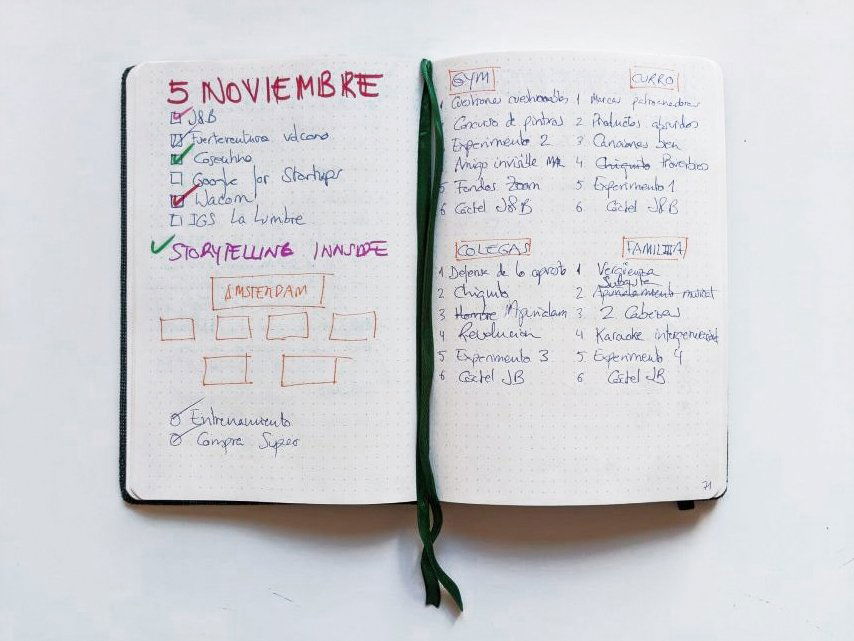 5 NOVIEMBRE
J&B
Fuerteventura volcano
Cosentino
Google for Startups
Wacom
IGS La Lumbre
STORYTELLING INNSIDE
AMSTERDAM
Entrenamiento
Compra Super
GYM
1 Cuestiones cuestionables
Concurso de pintras
Experimento 2
Amigo invisible
5 Fondos Zoom
6 Cóctel J&B
CURRO
1 Marcas patrocinadoras
2 Productos absurdos
3 Canciones
4 Chiquito Proverbios
5 Experimento 1
6 Cóctel J&B
COLEGAS
1 Defensa de lo opuesto
2 Chiquito
3 Hombre
4 Revolución
5 Experimento 3
6 Cóctel JB
FAMILIA
1 Vergüenza
2 Subasta
3 2 Cabezas
4 Karaoke intergeneracional
5 Experimento 4
6 Cóctel JB
71